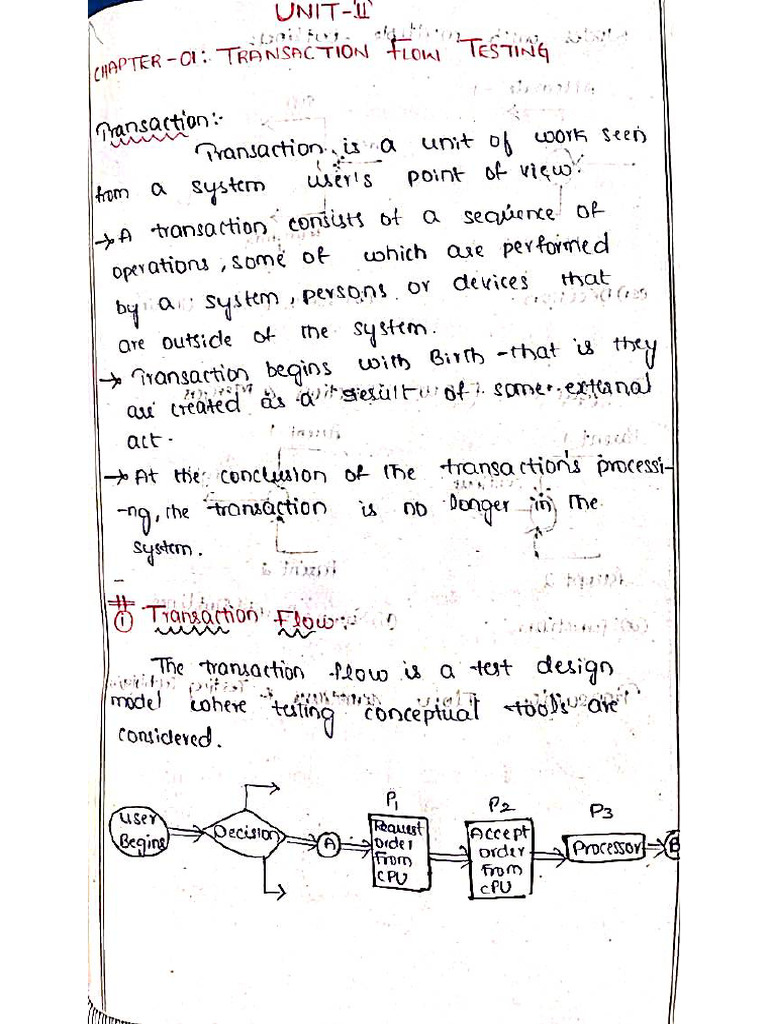 UNIT-II
CHAPTER-01: TRANSACTION FLOW TESTING
Transaction:-
Transaction is a unit of work seen
from a system user's point of view.
→ A transaction consists of a sequence of
operations, some of which are performed
by a system, persons or devices that
are outside of the system.
→ Transaction begins with Birth-that is they
are created as a result of some external
act.
→ At the conclusion of the transaction's processi-
-ng, the transaction is no longer in the
system.
① Transaction Flow:
The transaction flow is a test design
model where testing conceptual tools are
considered.
P1 P2 P3
User
Begins
Decision
A
Request
order
From
CPU
Accept
order
from
CPU
Processor
B